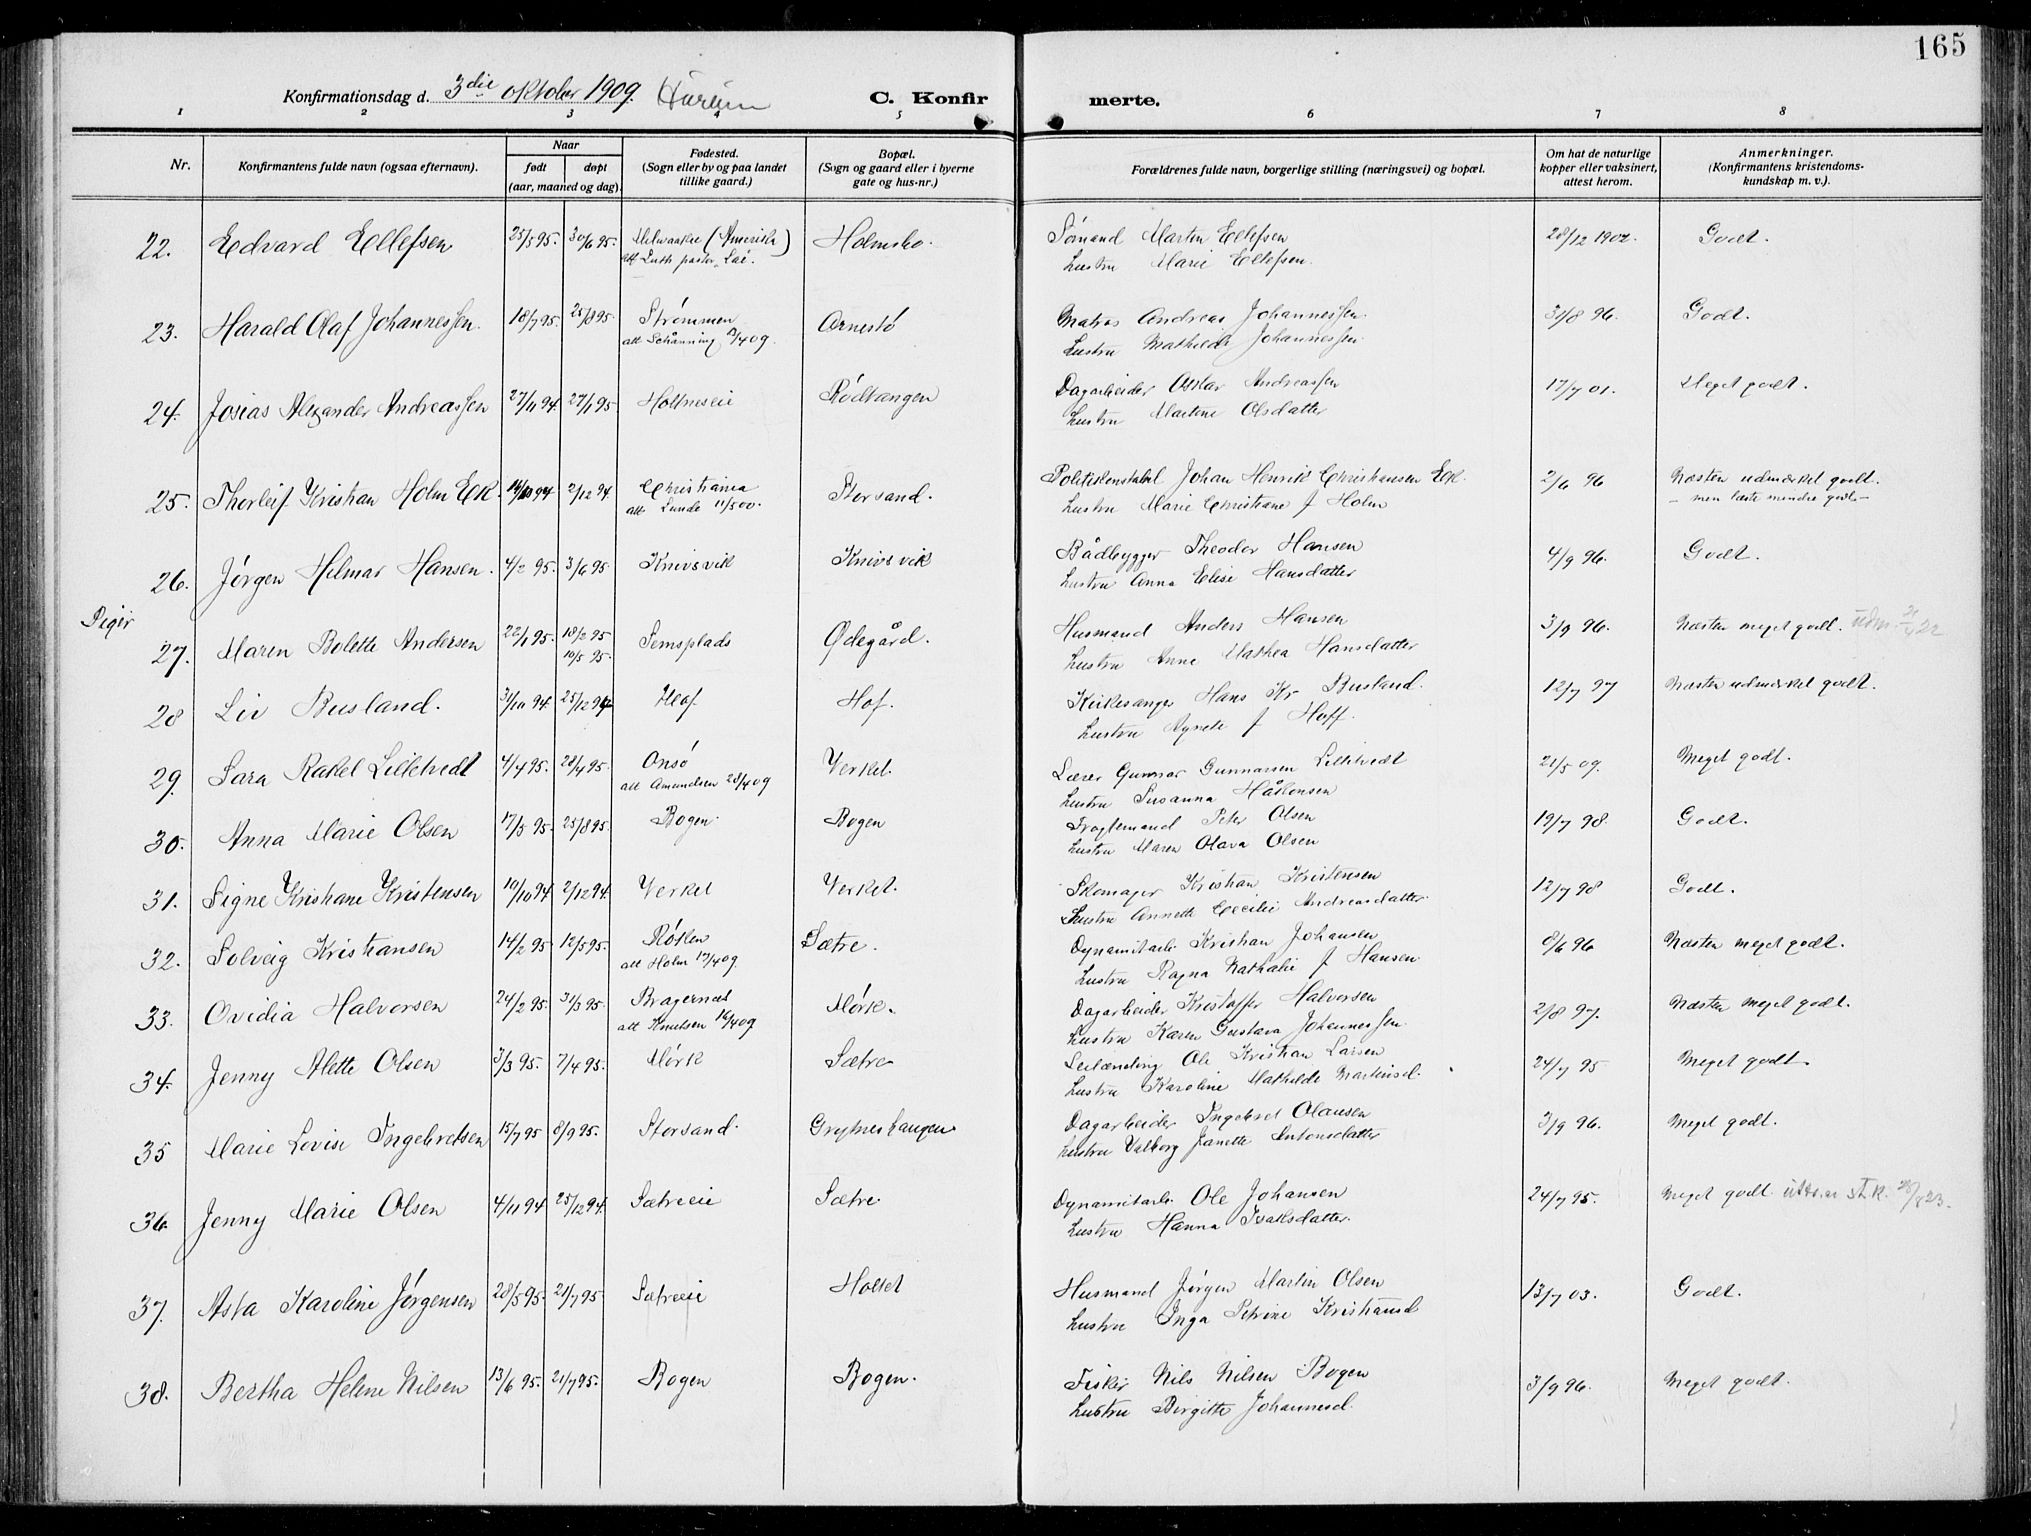 165
Konfirmationsdag d. 3die oktober 1909. Hurum C. Konfir merte.
1 2 3 4 5 6 7 8
Nr. Konfirmantens fulde navn (ogsaa efternavn). Naar født døpt (aar, maaned og dag). Fødested. (Sogn eller by og paa landet tillike gaard.) Bopæl. (Sogn og gaard eller i byerne gate og hus-nr.) Forældrenes fulde navn, borgerlige stilling (næringsvei) og bopæl. Om hat de naturlige kopper eller vaksinert, attest herom. Anmerkninger. (Konfirmantens kristendoms-kundskap m. v.).
22. Edvard Ellefsen 25/5 95. 30/6 95. Milwaukee (Amerika) Holmsbo. Sømand Martin Ellefsen 28/12 1902. Godt.
att Luth. pastor Hustru Marie Ellefsen.
23. Harald Olaf Johannessen. 18/7 95. 25/8 95. Strømmen Ørnestø Matros Andreas Johannessen. 31/8 96. Godt.
att Schånning /4 09. Hustru Mathilde Johannessen.
24. Josias Alexander Andreassen 27/11 94. 27/1 95 Holtneseie Rødtangen Dagarbeider Oskar Andreassen 17/7 01. Meget godt.
Hustru Martine Olsdatter
25. Thorleif Kristian Holm Eek. 14/10 94 2/12 94. Christiania Storsand. Politikonstabel Johan Henrik Christiansen Eek. 2/6 96 Næsten udmerket godt.
att Lunde 11/5 00. Hustru Marie Christiane f Holm – men læste mindre godt –
26. Jørgen Hilmar Hansen. 4/2 95. 3/6 95 Knivsvik Knivsvik Bådbygger Theodor Hansen 4/9 96. Godt.
Hustru Anna Elise Hansdatter
Piger
27. Maren Bolette Andersen 22/1 95. 10/2 95 Semsplads Ødegård. Husmand Anders Hansen 3/9 96. Næsten meget godt. udm. 21/4 22
10/5 95. Hustru Anne Mathea Hansdatter
28 Liv Busland. 31/10 94. 25/12 94 Hof Hof. Kirkesanger Hans Kr Busland. 12/7 97 Næsten udmerket godt.
Hustru Agnete f Hoff.
29. Sara Rakel Lilletvedt 4/4 95. 28/4 95. Onsø Verket. Lærer Gunnar Gunnarsen Lilletvedt 21/5 09. Meget godt.
att Amundsen 28/4 09 Hustru Susanna Håkonsen
30. Anna Marie Olsen 17/5 95. 25/8 95. Bogen. Bogen Fragtemand Peter Olsen 19/7 98. Godt.
Hustru Maren Olava Olsen
31. Signe Kristiane Kristensen 10/10 94 2/12 94. Verket Verket. Skomager Kristian Kristensen 12/7 98 Godt.
Hustru Annette Cecilie Andreasdatter.
32. Solveig Kristiansen 14/2 95. 12/5 95. Røken Sætre. Dynamitarb. Kristian Johansen 8/6 96 Næsten meget godt.
att Holm 17/4 09. Hustru Ragna Nathalie f Hansen
33. Ovidia Halvorsen 24/2 95. 31/3 95. Bragernæs Mørk. Dagarbeider Kristoffer Halvorsen 2/8 97. Næsten meget godt.
att Knutsen 16/4 09 Hustru Karen Gustava Johannessen.
34. Jenny Alette Olsen 3/3 95. 7/4 95. Mørk Sætre Leilænding Ole Kristian Larsen 24/7 95 Meget godt.
Hustru Karoline Mathilde Martinsd.
35 Marie Lovise Ingebretsen 15/7 95 8/9 95. Storsand. Grytneshaugen Dagarbeider Ingebret Olausen 3/9 96. Meget godt.
Hustru Valborg Janette Antonsdatter
36. Jenny Marie Olsen 4/11 94 25/12 94. Sætreeie Sætre. Dynamitarb. Ole Johansen 24/7 95. Meget godt 23.
Hustru Hanna Isaksdatter.
37. Asta Karoline Jørgensen 28/5 95. 21/7 95 Sætreeie Holtet Husmand Jørgen Martin Olsen 13/7 03. Godt.
Hustru Inga Petrine Kristiansd
38. Bertha Helene Nilsen 13/6 95. 21/7 95. Bogen Bogen. Fisker Nils Nilsen Bogen 3/9 96. Meget godt.
Hustru Birgitte Johannesd.